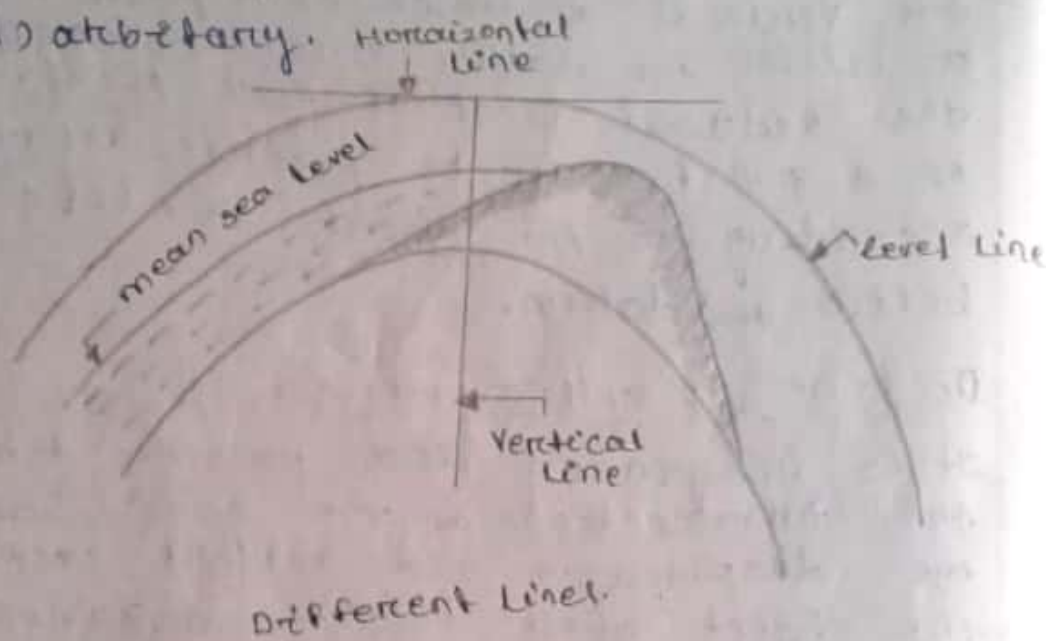 ) arbitary. Horaizontal
Line
mean sea level
Level Line
Vertical
Line
Different Lines.